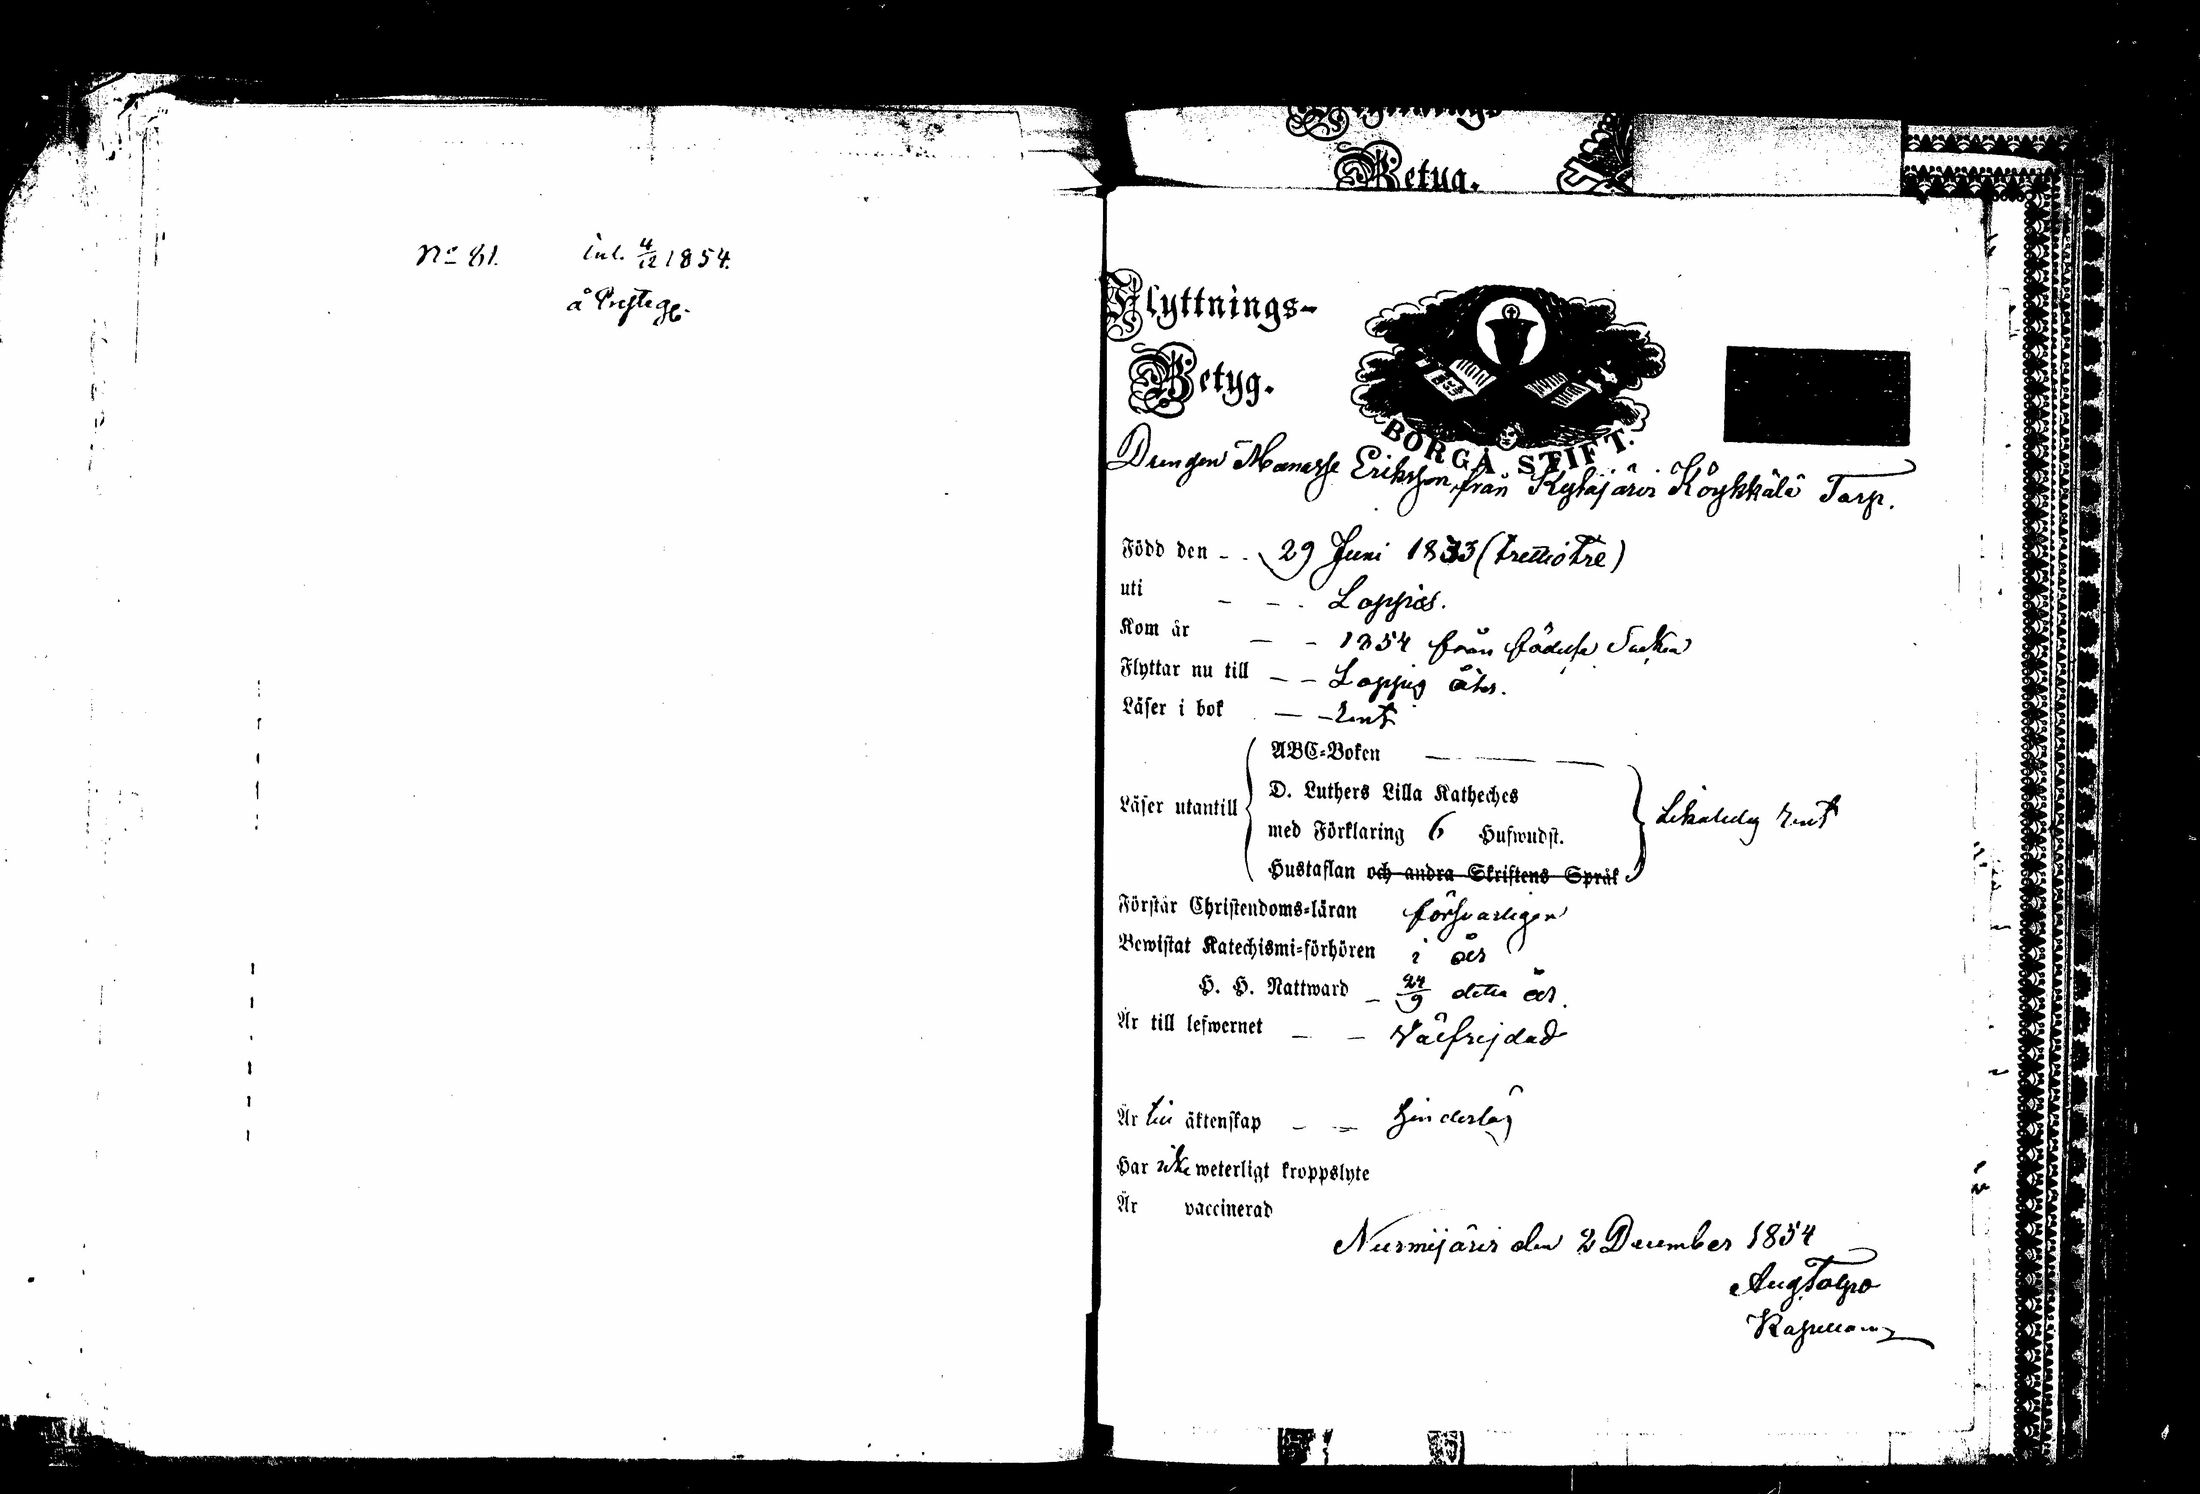 No 81. inl. 4/12 1854.
å Presteg.
Betyg.
Flyttnings-
Betyg.
BORGÅ STIFT.
Drengen Manasse Eriksson från Kytäjärvi Köykkälä Torp.
Född den - - 29 Juni 1833 (trettiotre)
uti - - - Loppis.
Kom år - - 1854 från födelse Socken
Flyttar nu till - - Loppis åter.
Läser i bok - - rent
ABC-Boken
Läser utantill D. Luthers Lilla Katheches
med Förklaring 6 Hufwudst. Likaledes rent
Hustaflan och andra Skriftens Språk
Förstår Christendoms-läran försvarligen
Bewistat Katechismi-förhören i år
H. H. Nattward - 24/9 detta år.
Är till lefwernet - - Välfrejdad
Är till äktenskap - - hinderlös
Har icke weterligt kroppslyte
Är vaccinerad
Nurmijärvi den 2 December 1854
Aug. Talpo
Kapellan